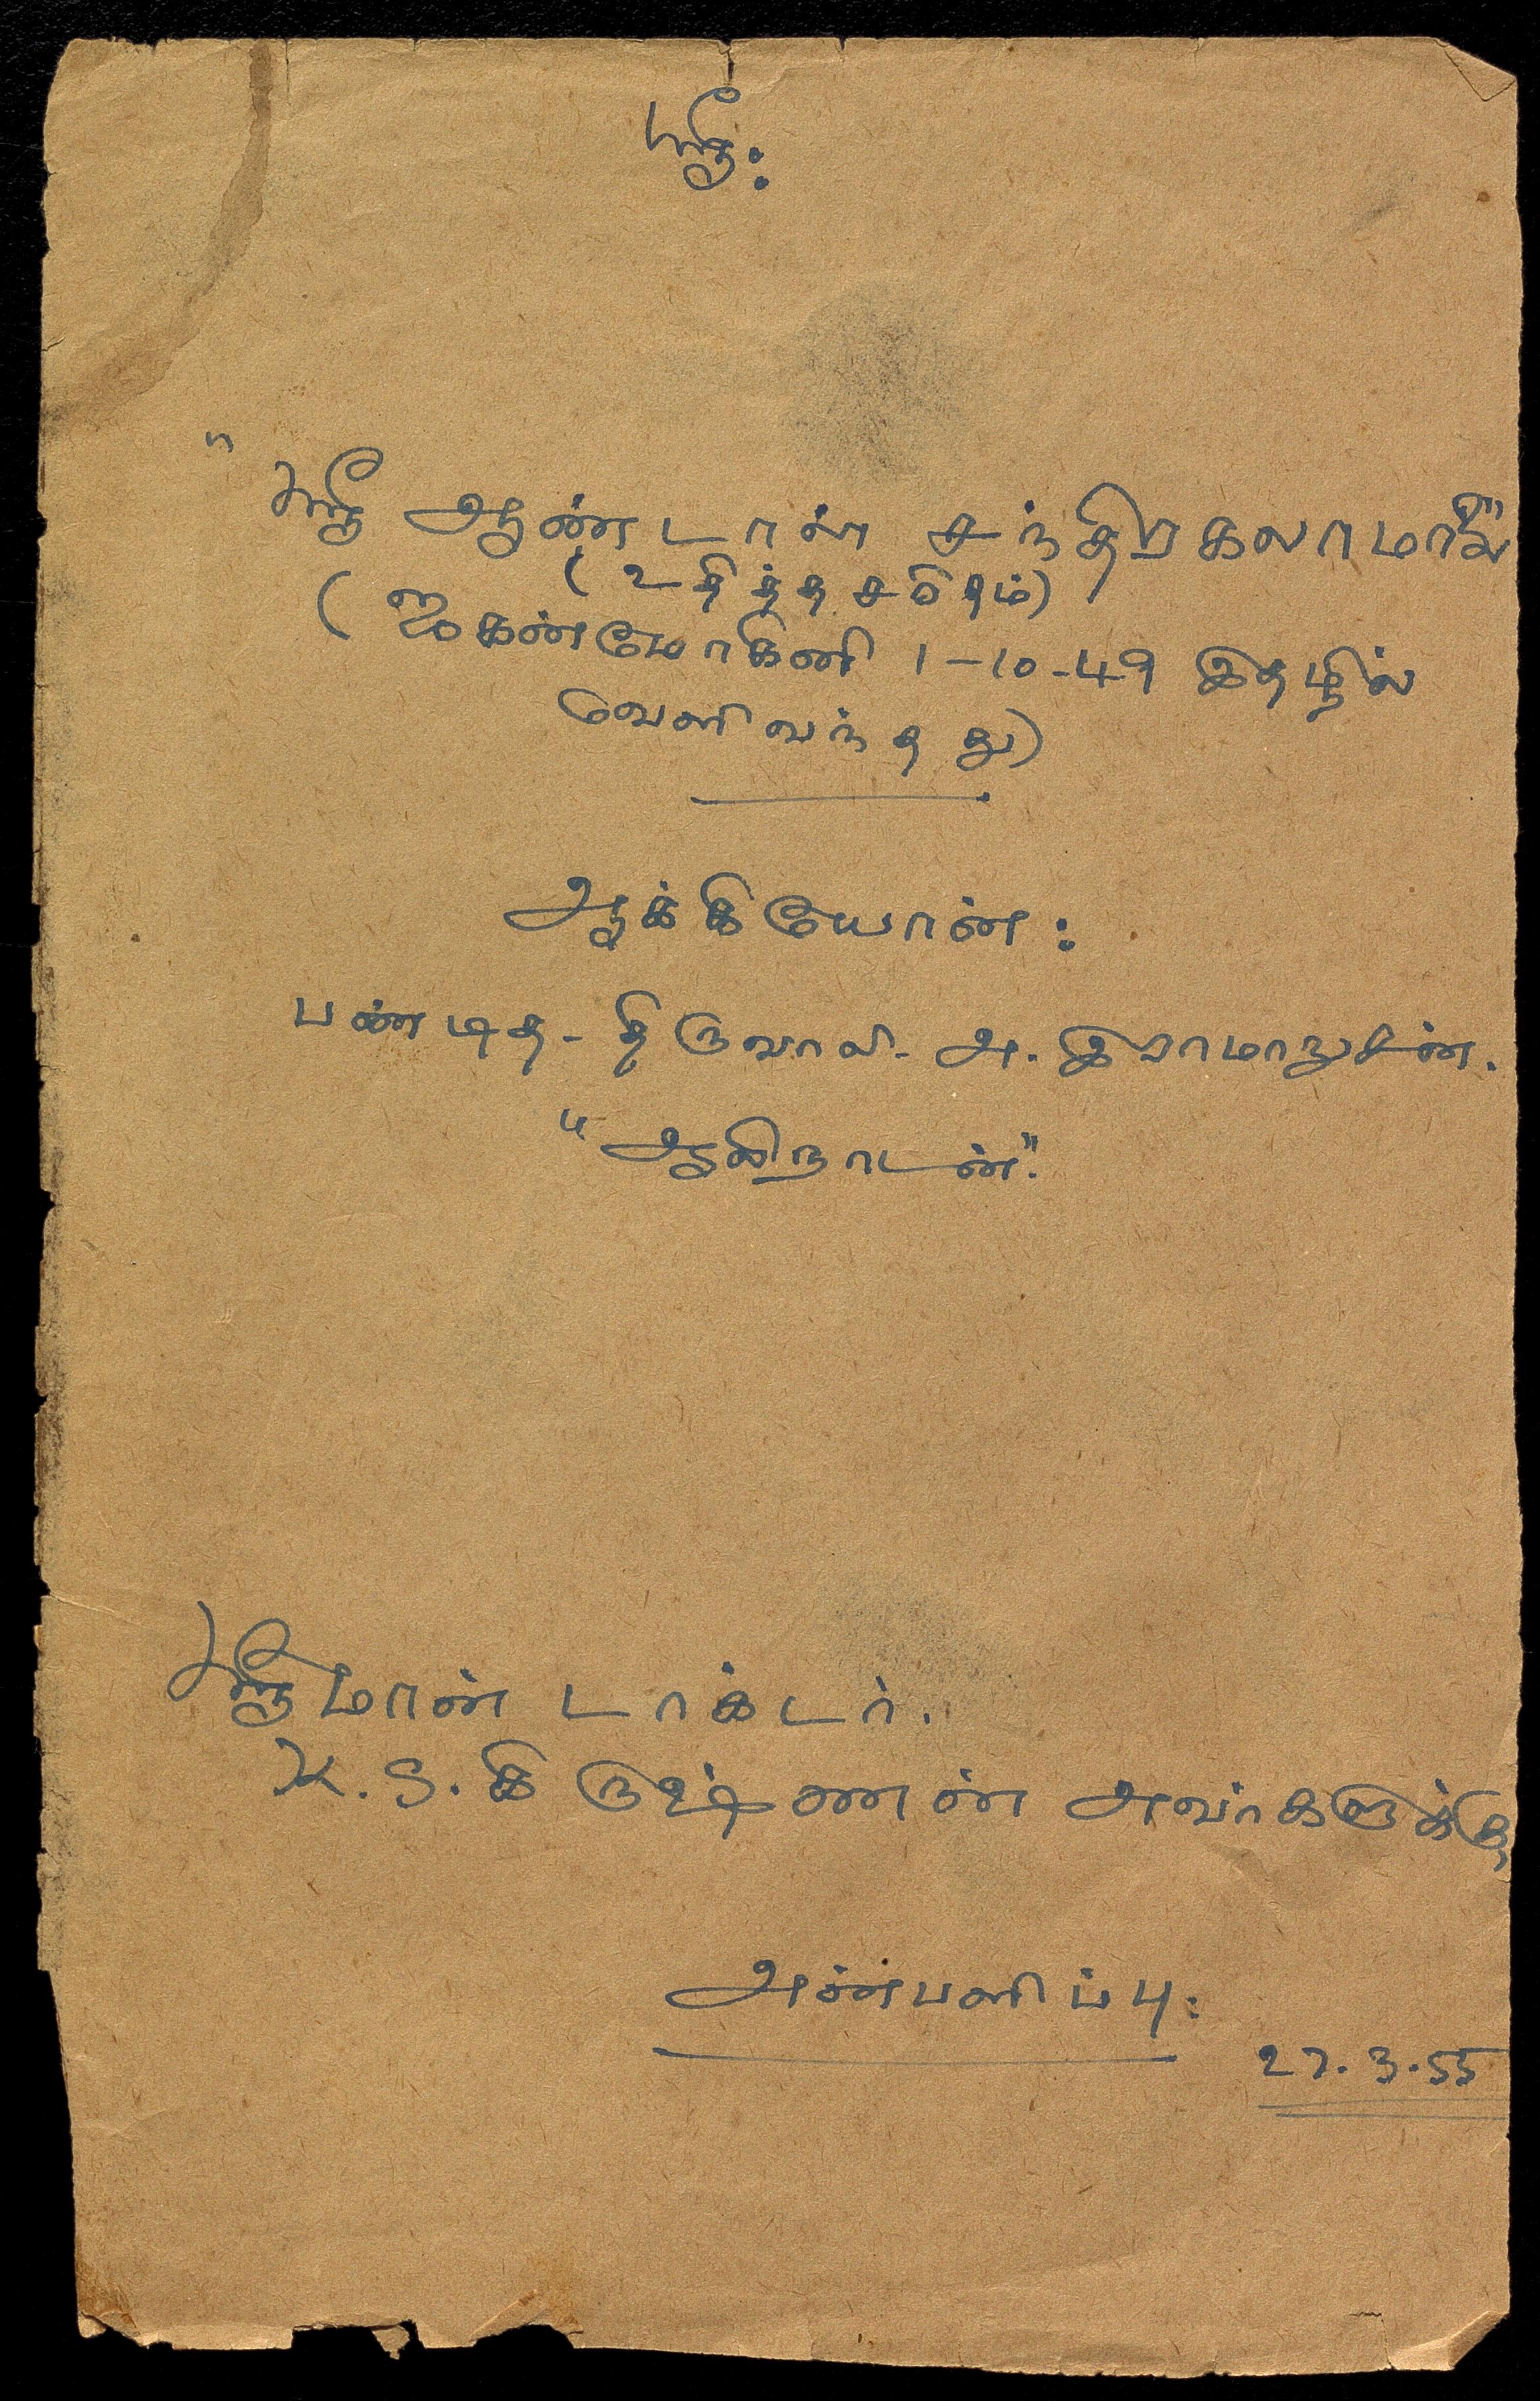 ஸ்ரீ:
"ஸ்ரீ ஆண்டாள் சந்திரகலாமாலை"
(உதித்த சரிதம்)
(ஜகன்மோகினி 1-10-49 இதழில்
வெளிவந்தது)
ஆக்கியோன்:
பண்டித - திருவாலி - அ. இராமாநுசன்.
"ஆலிநாடன்".
ஸ்ரீமான் டாக்டர்.
K. S. கிருஷ்ணன் அவர்களுக்கு,
அன்பளிப்பு:
27.3.55